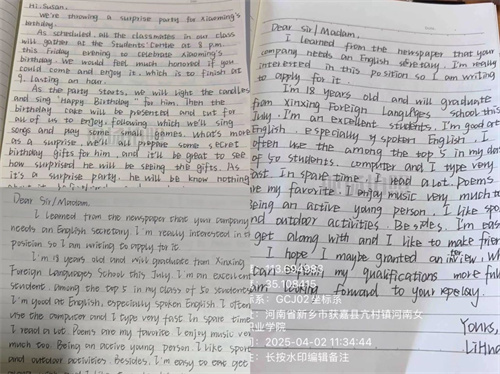 Hi, Susan,
We're throwing a surprise party for Xiaoming's
birthday.
As scheduled, all the classmates in our class
will gather at the Students' Centre at 8 p.m.
this Friday evening to celebrate Xiaoming's
birthday. We would feel much honored if you
could come and enjoy it, which is to finish at
9, lasting an hour.
As the party starts, we will light the candles
and sing "Happy Birthday" for him. Then the
birthday cake will be presented and cut for
all of us to enjoy, following which, we'll sing
songs and play some small games. What's more
as a surprise, we'll all prepare some secret
birthday gifts for him, and it'll be great to see
how surprised he will be seeing the gifts. As
it's a surprise party, he will be know nothing
Dear Sir/Madam,
I learned from the newspaper that your company
needs an English secretary. I'm really interested in the
position so I am writing to apply for it.
I'm 18 years old and will graduate from Xinxing
Foreign Languages School this July. I'm an excellent
student, among the top 5 in my class of 50 students.
I'm good at English, especially spoken English. I often
use the computer and I type very fast. In spare time
I read a lot. Poems are my favorite. I enjoy music very
much too. Being an active young person, I like sports
and outdoor activities. Besides, I'm easy to get
Dear Sir/Madam,
I learned from the newspaper that your
company needs an English secretary. I'm really
interested in this position so I am writing
to apply for it.
I'm 18 years old and will graduate
from Xinxing Foreign Languages school this
July. I'm an excellent students. I'm good at
English, especially spoken English. I
often use the among the top 5 in my class
of 50 students. computer and I type very
fast. In spare time I read a lot. Poems
are my favorite. I enjoy music very much to
Being an active young person, I like sport
and outdoor activities. Besides, I'm easy
get along with and I like to make frien
I hope I maybe granted an interview, wh
can my qualifications more ful
looking forward to your
Yours,
LiHua
13.694983
35.108415
系: GCJ02坐标系
址: 河南省新乡市获嘉县亢村镇河南女
业学院
2025-04-02 11:34:44
长按水印编辑备注